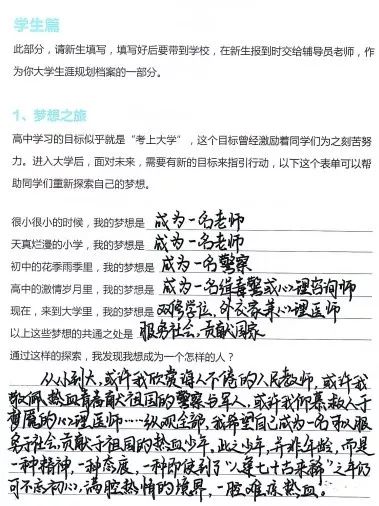 学生篇
此部分，请新生填写，填写好后要带到学校，在新生报到时交给辅导员老师，作
为你大学生涯规划档案的一部分。
1、梦想之旅
高中学习的目标似乎就是“考上大学”，这个目标曾经激励着同学们为之刻苦努
力。进入大学后，面对未来，需要有新的目标来指引行动，以下这个表单可以帮
助同学们重新探索自己的梦想。
很小很小的时候，我的梦想是 成为一名老师
天真烂漫的小学，我的梦想是 成为一名老师
初中的花季雨季里，我的梦想是 成为一名警察
高中的激情岁月里，我的梦想是 成为一名缉毒警或心理咨询师
现在，来到大学里，我的梦想是 双修学位，外交家兼心理医师
以上这些梦想的共通之处是 服务社会，贡献国家
通过这样的探索，我发现我想成为一个怎样的人？
从小到大，或许我欣赏诲人不倦的人民教师，或许我
敬佩热血青春献祖国的警察与军人，或许我仰慕救人于
梦魇的心理医师……纵观全部，我希望自己成为一名以服
务于社会，贡献于祖国的热血少年，此之少年，并非年龄，而是
一种精神，一种态度，一种即使到了“人生七十古来稀”之年仍
可不忘初心，满腔热情的境界，一腔难凉热血。